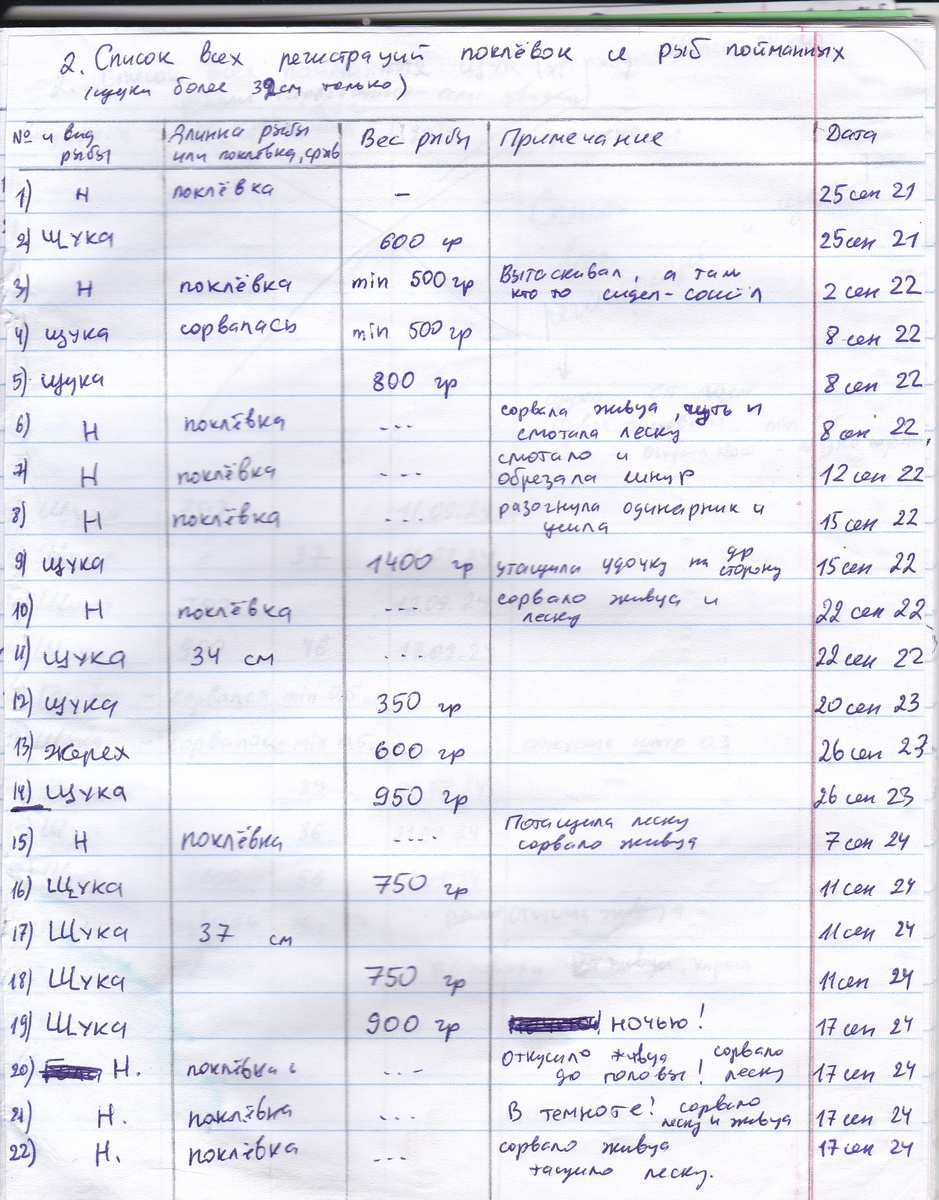 2. Список всех регистраций поклёвок и рыб пойманных
(щуки более 32см только)
№ и вид рыбы Длинна рыбы или поклёвка, срыв Вес рыбы Примечание Дата
1) Н поклёвка – 25 сен 21
2) Щука 600 гр 25 сен 21
3) Н поклёвка min 500 гр Вытаскивал, а там кто то сидел-сошёл 2 сен 22
4) щука сорвалась min 500 гр 8 сен 22
5) щука 800 гр 8 сен 22
6) Н поклёвка --- сорвала живца, чуть и смотала леску 8 сен 22
7) Н поклёвка --- смотало и обрезала шнур 12 сен 22
8) Н поклёвка --- разогнула одинарник и ушла 15 сен 22
9) щука 1400 гр утащила удочку на др сторону 15 сен 22
10) Н поклёвка --- сорвало живца и леску 22 сен 22
11) щука 34 см --- 22 сен 22
12) щука 350 гр 20 сен 23
13) жерех 600 гр 26 сен 23
14) щука 950 гр 26 сен 23
15) Н поклёвка ---- Потащила леску сорвало живца 7 сен 24
16) Щука 750 гр 11 сен 24
17) Щука 37 см 11 сен 24
18) Щука 750 гр 11 сен 24
19) Щука 900 гр ночью! 17 сен 24
20) Н. поклёвка --- Откусило живца до головы! сорвало леску 17 сен 24
21) Н. поклёвка --- В темноте! сорвало леску и живца 17 сен 24
22) Н. поклёвка --- сорвало живца тащило леску. 17 сен 24